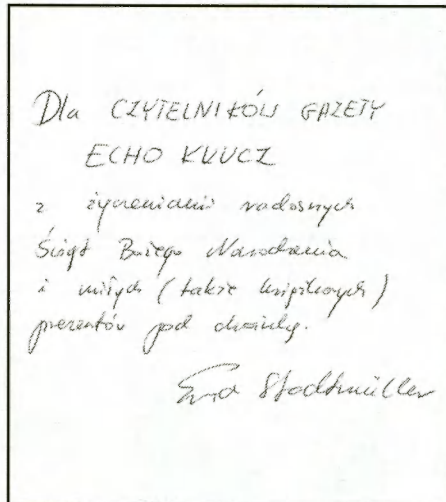 Dla CZYTELNIKÓW GAZETY
ECHO KLUCZ
z życzeniami radosnych
Świąt Bożego Narodzenia
i miłych (także książkowych)
prezentów pod choinkę.
Ewa Stadtmüller